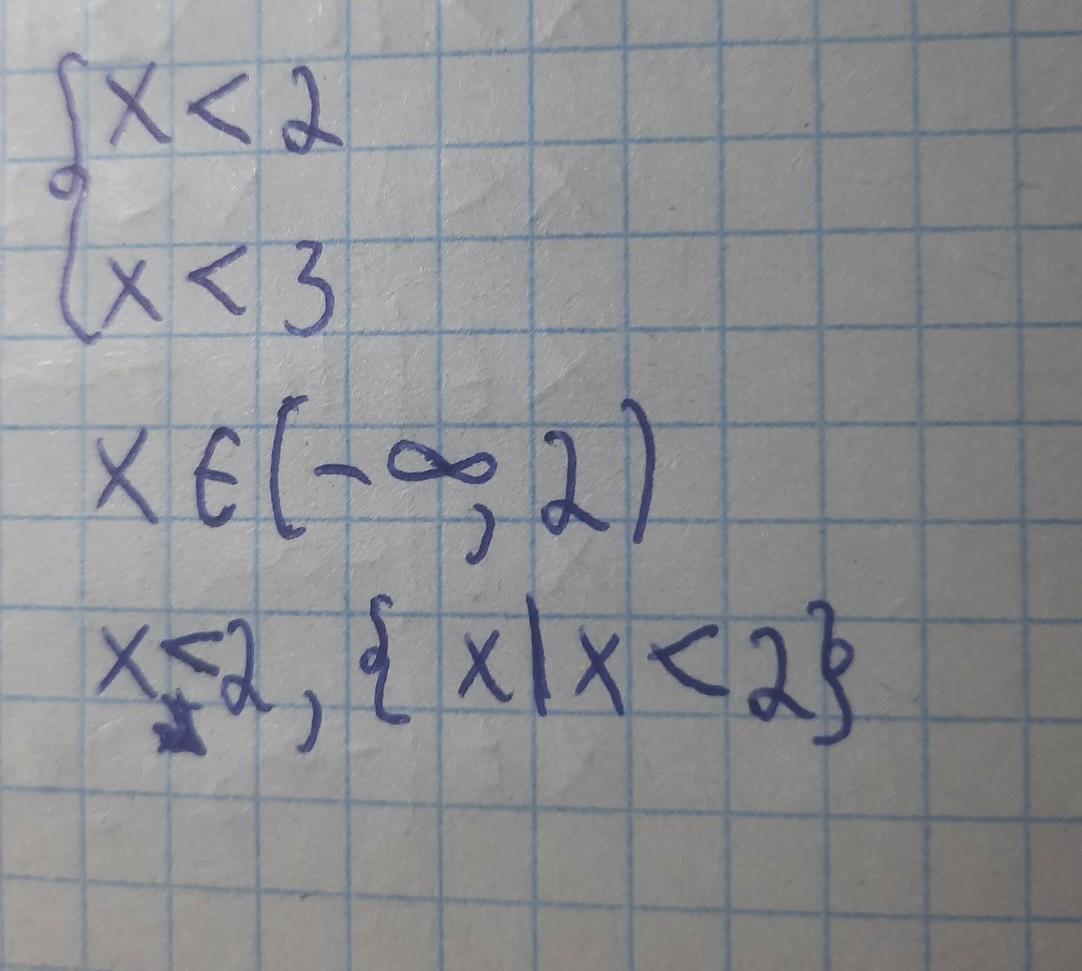 { x < 2
x < 3
x ∈ (-∞, 2)
x < 2, { x | x < 2 }